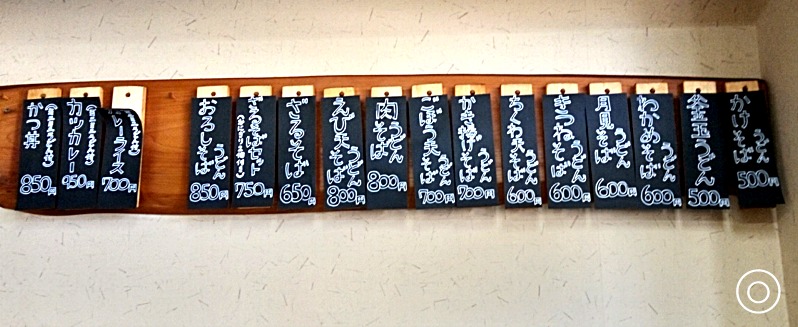 かけそば うどん 500円
釜玉うどん 500円
わかめそば うどん 600円
月見そば うどん 600円
きつねそば うどん 600円
ちくわ天そば うどん 600円
かき揚げそば うどん 700円
ごぼう天そば うどん 700円
肉そば うどん 800円
えび天そば うどん 800円
ざるそば 650円
ざるそばセット 750円
おろしそば 850円
レーライス 700円
カツカレー 950円
かつ丼 850円